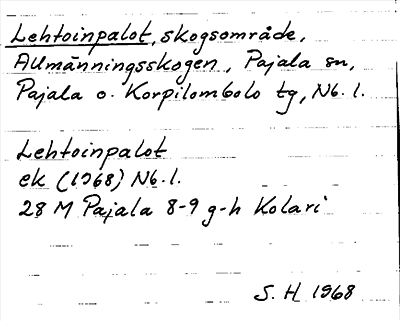 Lehtoinpalot, skogsområde,
Allmänningsskogen, Pajala sn,
Pajala o. Korpilombolo tg, Nb. l.
Lehtoinpalot
ek (1968) Nb. l.
28 M Pajala 8-9 g-h Kolari
S. H. 1968